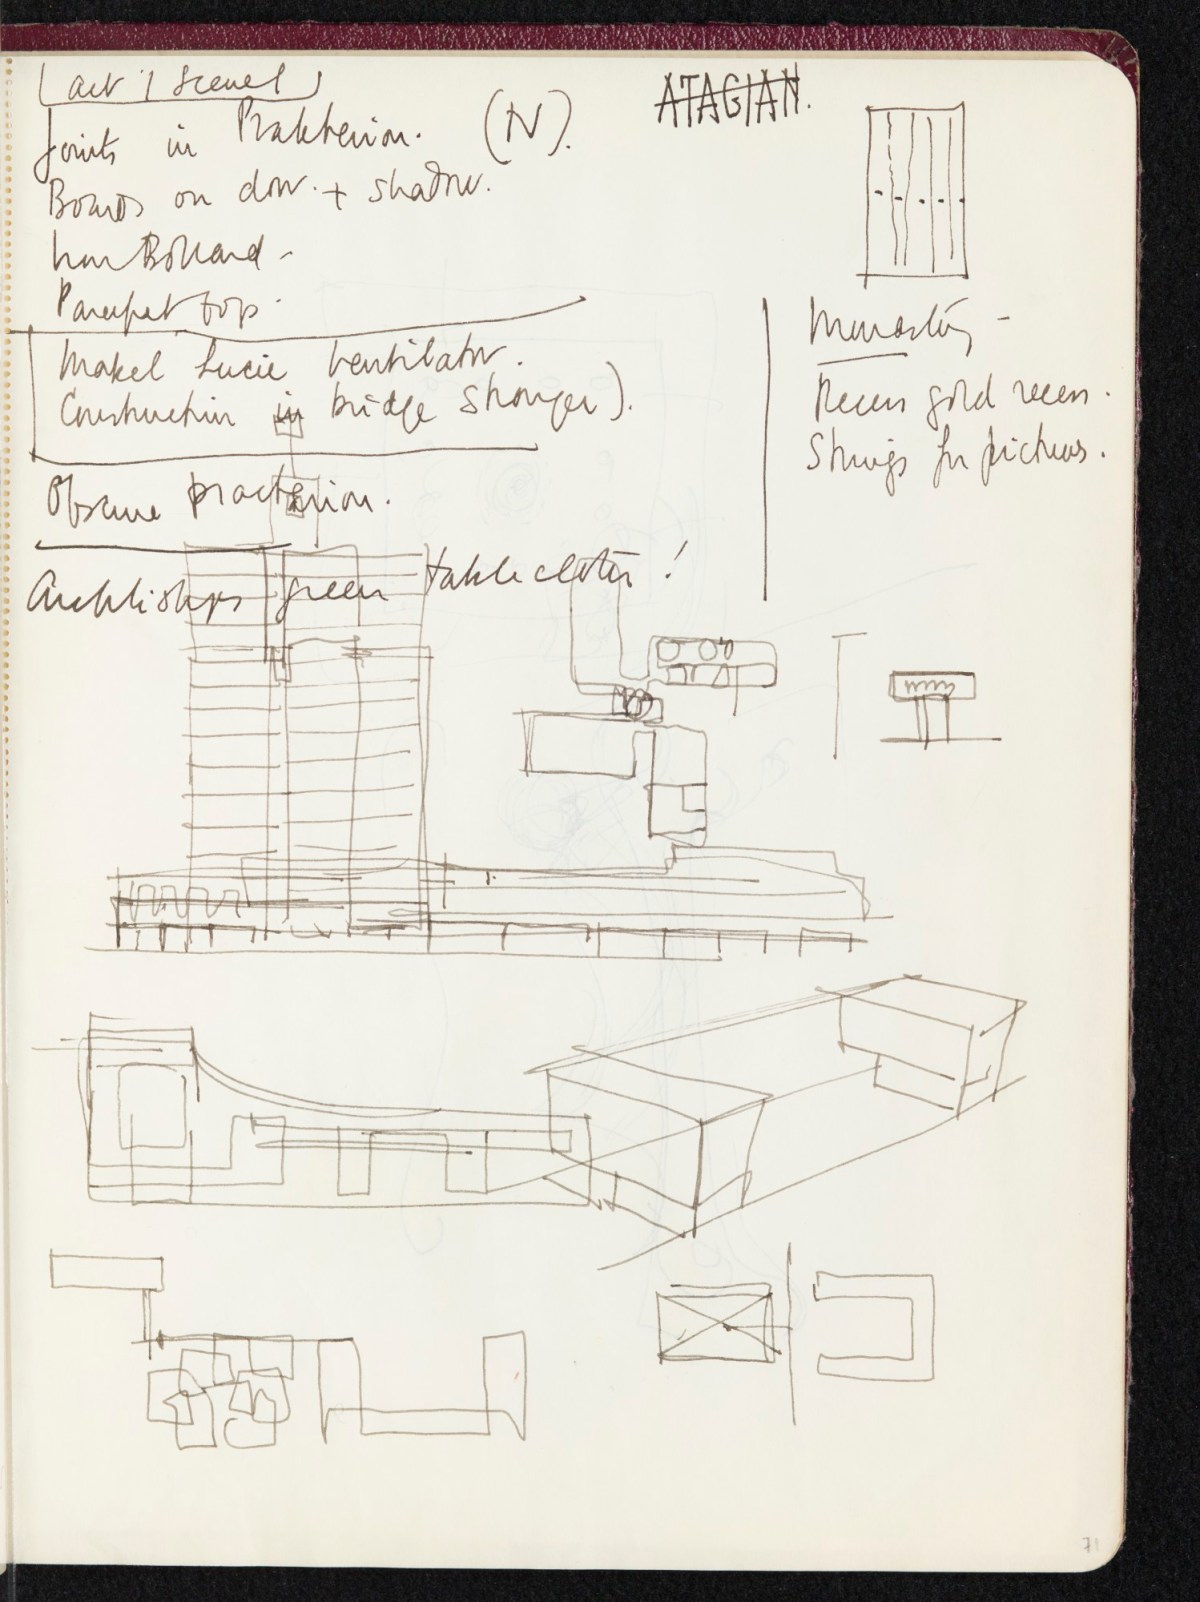 Act 1 Scene 1
Joints in Prakterion. (N).
Boards on door. + shadow.
Bollard -
Parapet top.
Makel Lucie Ventilator.
Construction in bridge stronger).
Obscure procterion.
Archbishops green table cloths!
ATAGIAN.
Monastery -
Recess gold recess.
Strings for pictures.
71